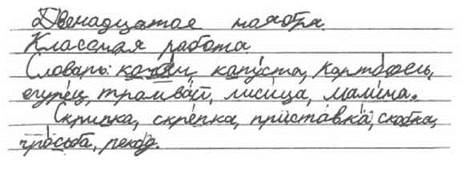 Двенадцатое ноября.
Классная работа
Словарь: капуста, картофель,
огурец, трамвай, лисица, машина.
Скрипка, скрепка, приставка,
просьба,